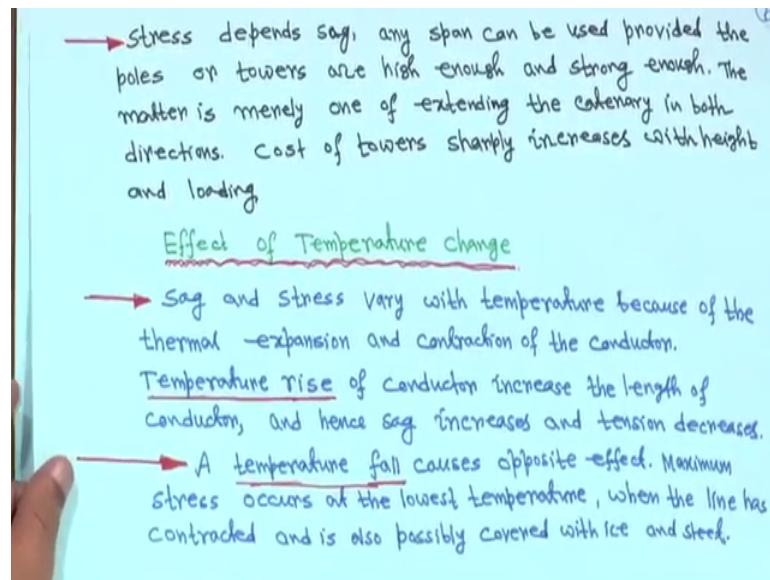 stress depends sag, any span can be used provided the
poles or towers are high enough and strong enough. The
matter is merely one of extending the catenary in both
directions. Cost of towers sharply increases with height
and loading.
Effect of Temperature Change
Sag and stress vary with temperature because of the
thermal expansion and contraction of the conductor.
Temperature rise of conductor increase the length of
conductor, and hence sag increases and tension decreases.
A temperature fall causes opposite effect. Maximum
stress occurs at the lowest temperature, when the line has
contracted and is also possibly covered with ice and